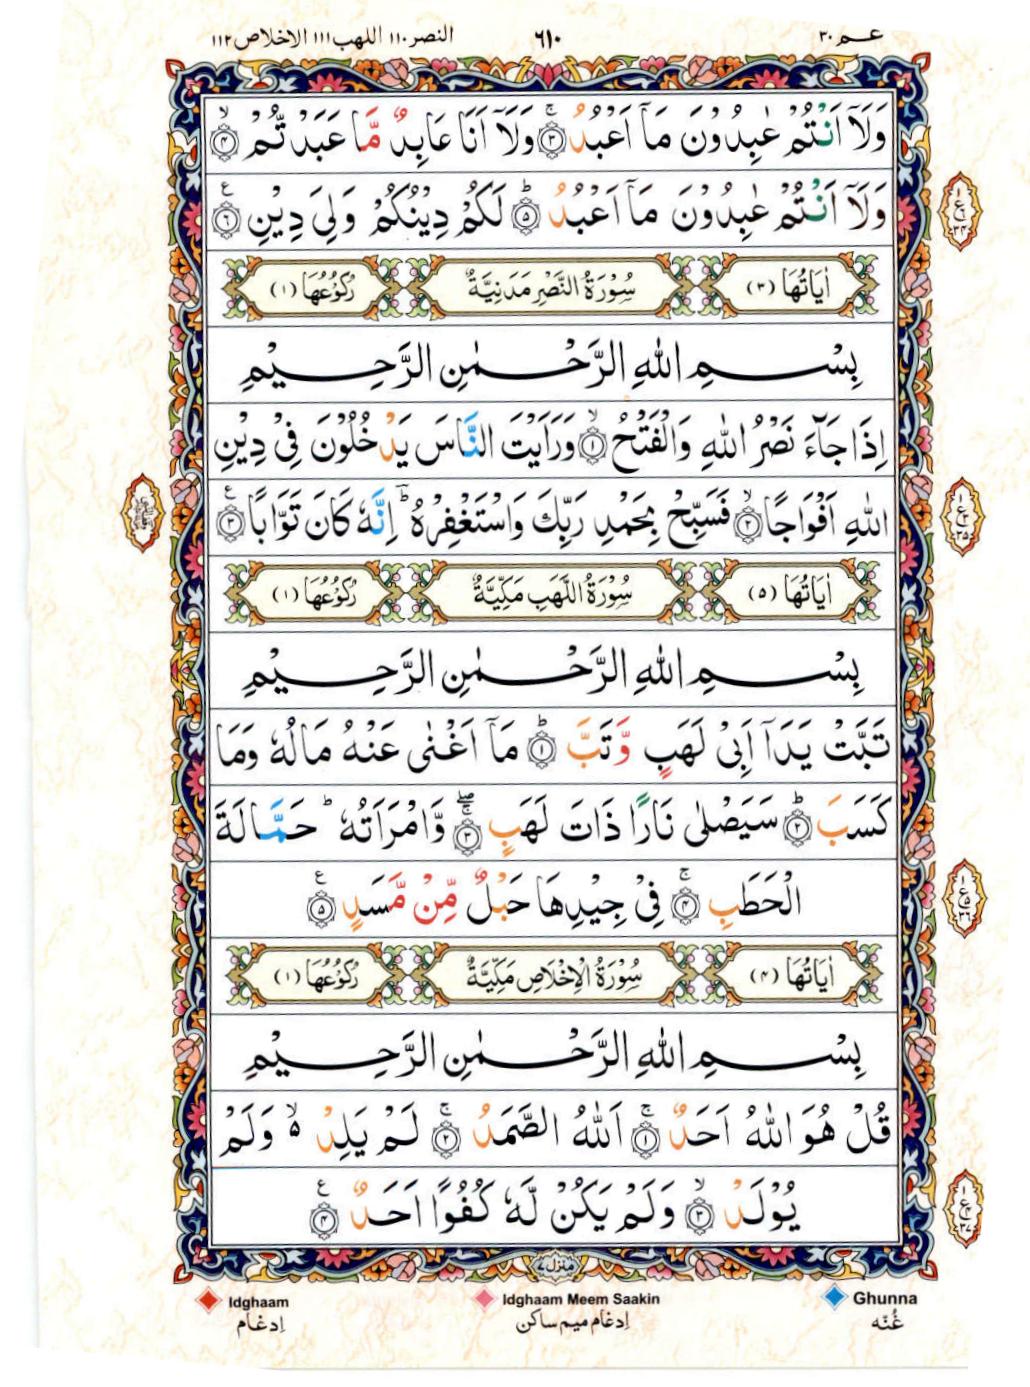 عـم ٣٠
٦١٠
النصر ١١٠ اللهب ١١١ الاخلاص ١١٢
وَلَاۤ اَنْتُمْ عٰبِدُوْنَ مَاۤ اَعْبُدُ ۚ‏﴿۳﴾ وَلَاۤ اَنَا عَابِدٌ مَّا عَبَدْتُّمْ ۙ‏﴿۴﴾
وَلَاۤ اَنْتُمْ عٰبِدُوْنَ مَاۤ اَعْبُدُ ؕ‏﴿۵﴾ لَكُمْ دِيْنُكُمْ وَلِيَ دِيْنِ ﴿۶﴾ ع
اٰيَاتُهَا (٣) سُوْرَةُ النَّصْرِ مَدَنِيَّةٌ رُكُوْعُهَا (١)
بِسْمِ اللّٰهِ الرَّحْمٰنِ الرَّحِيْمِ
اِذَا جَآءَ نَصْرُ اللّٰهِ وَالْفَتْحُ ۙ‏﴿۱﴾ وَرَاَيْتَ النَّاسَ يَدْخُلُوْنَ فِيْ دِيْنِ
اللّٰهِ اَفْوَاجًا ۙ‏﴿۲﴾ فَسَبِّحْ بِحَمْدِ رَبِّكَ وَاسْتَغْفِرْهُ ؕ اِنَّهٗ كَانَ تَوَّابًا ﴿۳﴾ ع
اٰيَاتُهَا (٥) سُوْرَةُ اللَّهَبِ مَكِّيَّةٌ رُكُوْعُهَا (١)
بِسْمِ اللّٰهِ الرَّحْمٰنِ الرَّحِيْمِ
تَبَّتْ يَدَاۤ اَبِيْ لَهَبٍ وَّتَبَّ ؕ‏﴿۱﴾ مَاۤ اَغْنٰى عَنْهُ مَالُهٗ وَمَا
كَسَبَ ؕ‏﴿۲﴾ سَيَصْلٰى نَارًا ذَاتَ لَهَبٍ ۚۖ‏﴿۳﴾ وَّامْرَاَتُهٗ ؕ حَمَّالَةَ
الْحَطَبِ ۚ‏﴿۴﴾ فِيْ جِيْدِهَا حَبْلٌ مِّنْ مَّسَدٍ ﴿۵﴾ ع
اٰيَاتُهَا (٤) سُوْرَةُ الْاِخْلَاصِ مَكِّيَّةٌ رُكُوْعُهَا (١)
بِسْمِ اللّٰهِ الرَّحْمٰنِ الرَّحِيْمِ
قُلْ هُوَ اللّٰهُ اَحَدٌ ۚ‏﴿۱﴾ اَللّٰهُ الصَّمَدُ ۚ‏﴿۲﴾ لَمْ يَلِدْ ۙ۬ وَلَمْ
يُوْلَدْ ۙ‏﴿۳﴾ وَلَمْ يَكُنْ لَّهٗ كُفُوًا اَحَدٌ ﴿۴﴾ ع
منزل ٧
Idghaam Idghaam Meem Saakin Ghunna
اِدغام اِدغام میم ساکن غُنّه